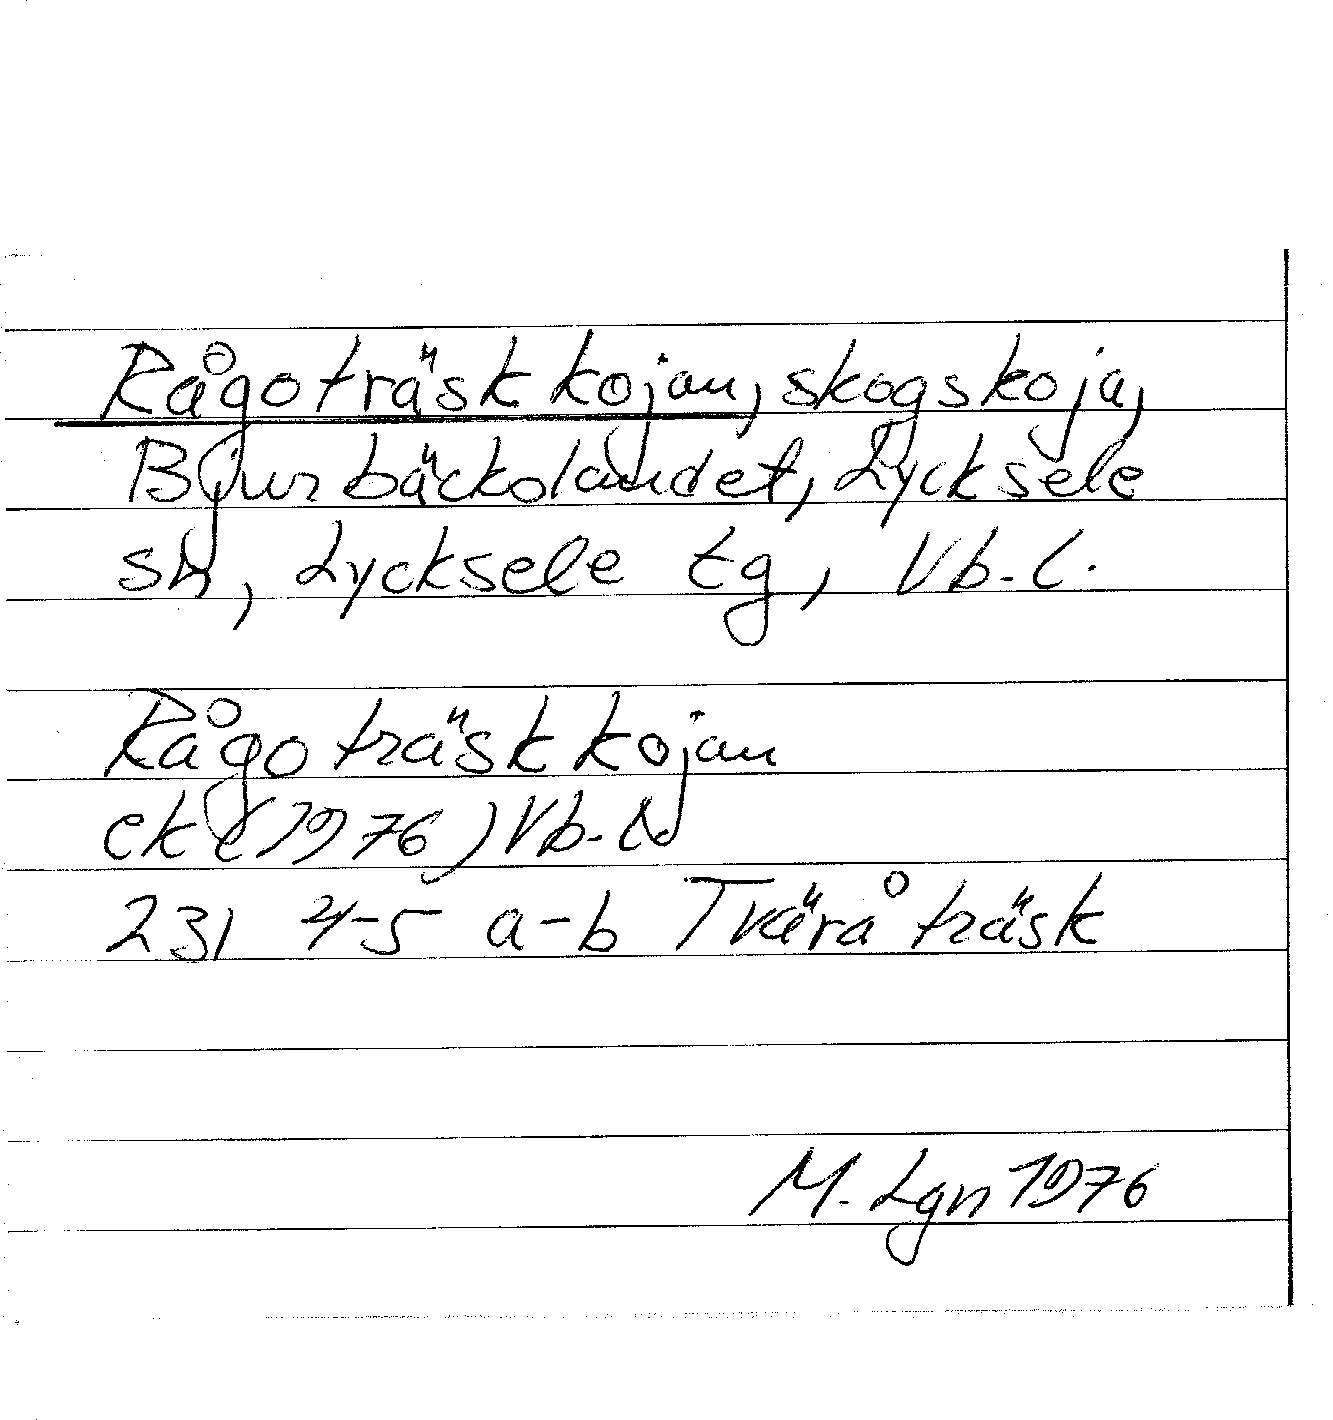 Rågoträskkojan, skogskoja,
Bjurbäckolandet, Lycksele
sn, Lycksele tg, Vb-l.
Rågoträskkojan
ek (1976) Vb-l
231 4-5 a-b Tväråträsk
M. Lgn 1976